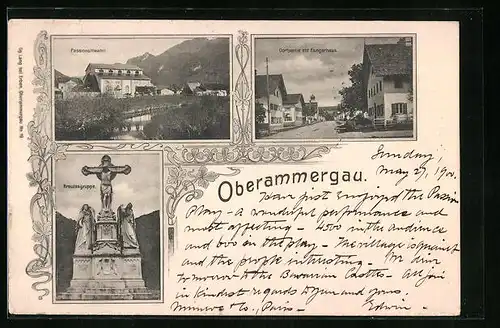 Passionstheater.
Dorfpartie mit Sängerhaus.
Kreuzesgruppe.
Oberammergau.
Sunday,
May 27, 1900.
Have just enjoyed the Passion
Play - a wonderful performance and
most affecting - 4500 in the audience
and 600 in the play - The village is quaint
and the people interesting - We
to the Bavarian Castles - All join
in kindest regards to you and yours.
Munroe & Co., Paris - Edwin -